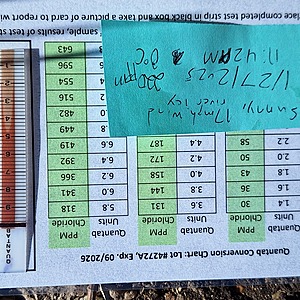 Quantab Conversion Chart: Lot #4272A, Exp. 09/2026
Quantab Units PPM Chloride Quantab Units PPM Chloride Quantab Units PPM Chloride
1.4 30 3.6 131 5.8 318
1.6 36 3.8 144 6.0 341
1.8 43 4.0 158 6.2 366
2.0 50 4.2 172 6.4 392
2.2 58 4.4 187 6.6 419
449
482
516
554
596
643
Sunny, 17mph wind
river icy
1/27/2025 220ppm
11:42AM 0°C
sample, results of test st
lace completed test strip in black box and take a picture of card
QUANTAB
1
2
3
4
5
6
7
8
9